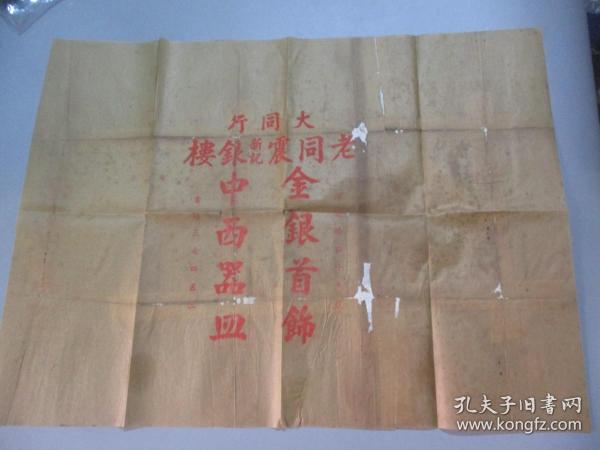 大同行
老同震新記銀樓
金銀首飾
中西器皿
孔夫子旧書网
www.kongfz.com